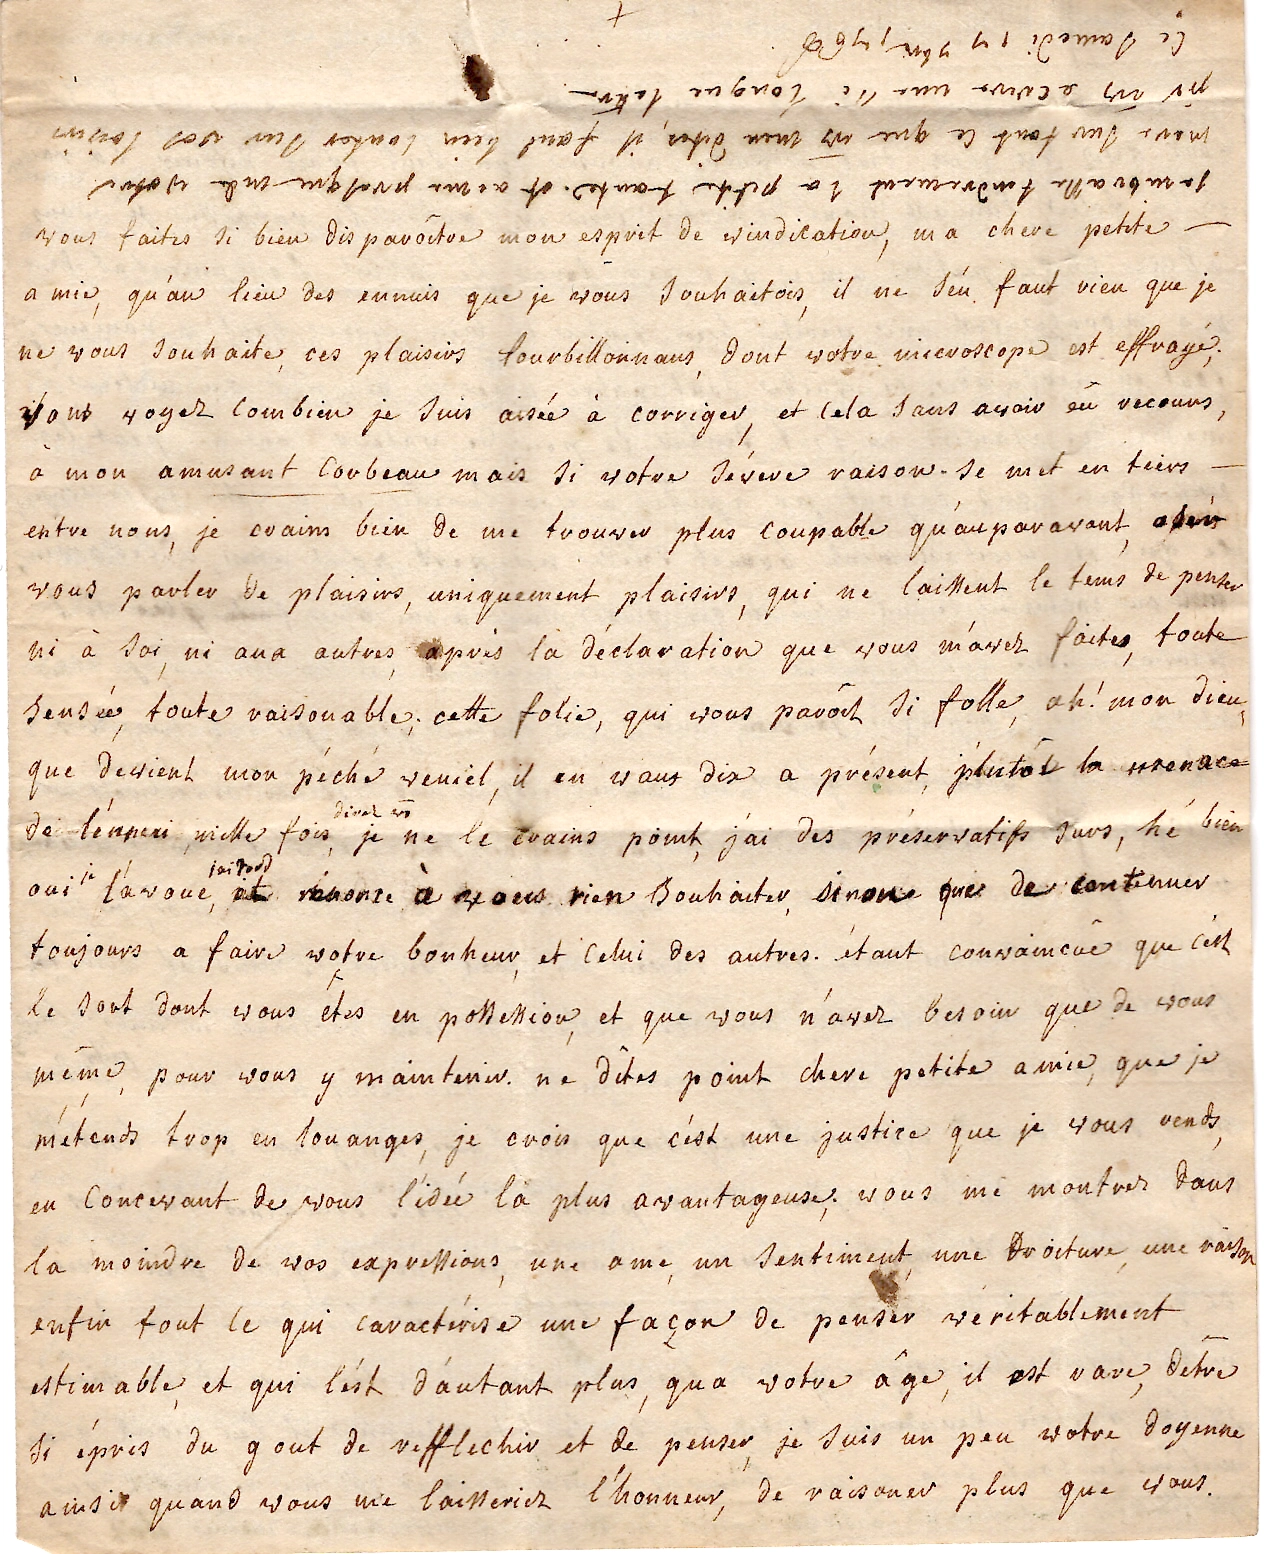 vous faites si bien disparôitre mon esprit de vindication, ma chere petite
amie, qu'au lieu des ennuis que je vous souhaitois, il ne s'en faut rien que je
ne vous souhaite, ces plaisirs tourbillonnans, dont votre microscope est effrayé;
vous voyez combien je suis aisée à corriger, et cela sans avoir eû recours,
à mon amusant Corbeau mais si votre sévere raison se met en tiers
entre nous, je crains bien de me trouver plus coupable qu'auparavant,
vous parler de plaisirs, uniquement plaisirs, qui ne laissent le tems de penser
ni à soi, ni aux autres, après la déclaration que vous m'avez faites, toute
sensée, toute raisonable, cette folie, qui vous parôit si folle, ah! mon dieu,
que devient mon péché veniel, il en vaut dix a présent, plutôt la menace
de l'ennui mille fois, direz vs je ne le crains point, j'ai des préservatifs surs, hé bien
oui je l'avoue, j'ai tord et renonce à vous rien souhaiter, sinon que de continuer
toujours a faire votre bonheur, et celui des autres. étant convaincûe que c'est
le sort dont vous êtes en possession, et que vous n'avez besoin que de vous
même, pour vous y maintenir. ne dîtes point chere petite amie, que je
m'étends trop en louanges, je crois que c'est une justice que je vous rends,
en concevant de vous l'idée la plus avantageuse; vous me montrez dans
la moindre de vos expressions, une ame, un sentiment, une droiture, une raison
enfin tout ce qui caractérise une façon de penser véritablement
estimable, et qui l'est d'autant plus, qua votre âge, il est rare, d'être
si épris du gout de refflechir et de penser, je suis un peu votre doyenne
ainsi quand vous me laisseriez l'honneur, de raisoner plus que vous.
J'embrasse tendrement la petite tante. et aime presque ma votre
mere sur tout ce que vs m'en dites, il faut bien conter sur vos loisirs
pr vs ecrire une si longue lettre
Ce samedi 17 9bre 1768